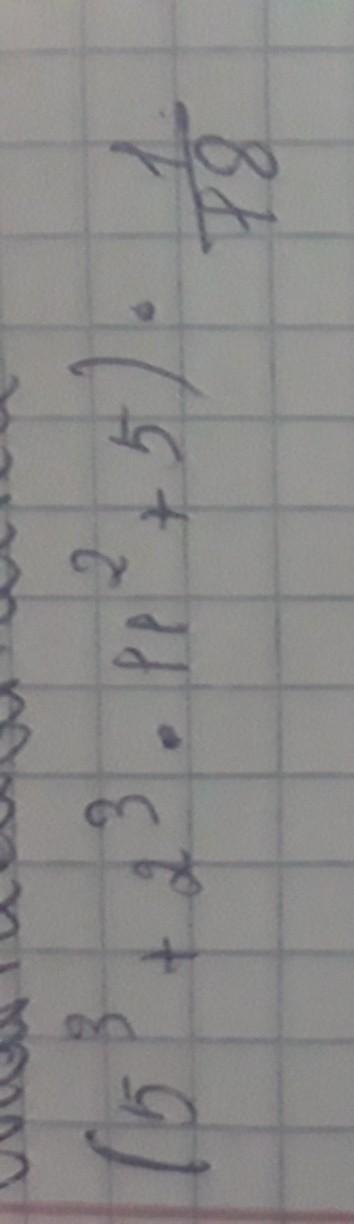 (5³ + 2³ · 11² + 5) · 1/78